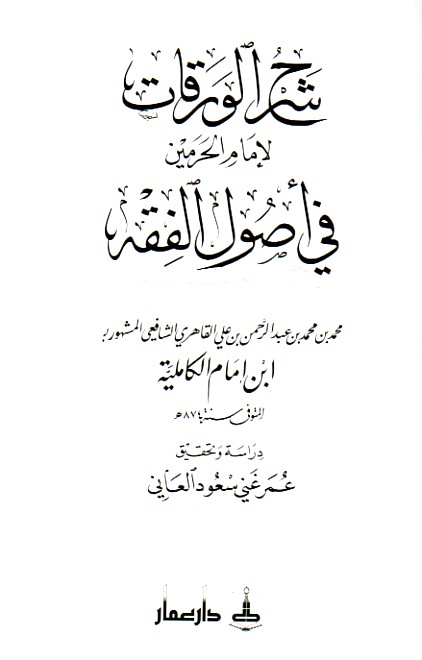 شرح الورقات
لإمام الحرمين
في أصول الفقه
محمد بن محمد بن عبد الرحمن بن علي القاهري الشافعي المشهور بـ
ابن إمام الكاملية
المتوفى سنة ٨٧٤هـ
دراسة وتحقيق
عمر غني سعود العاني
دار عمار